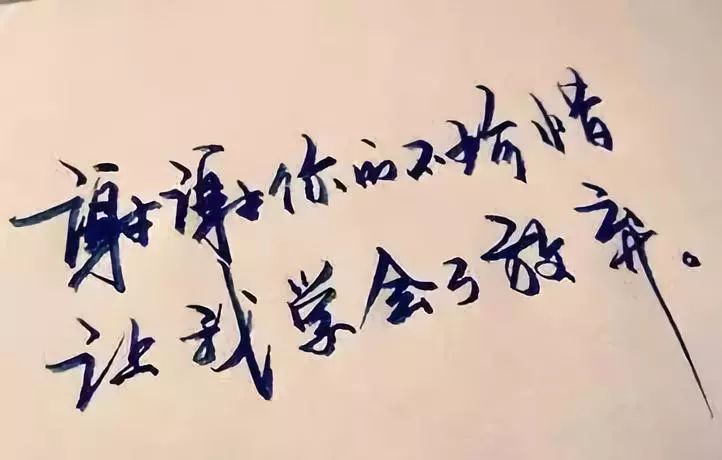 谢谢你的不珍惜
让我学会了放弃。